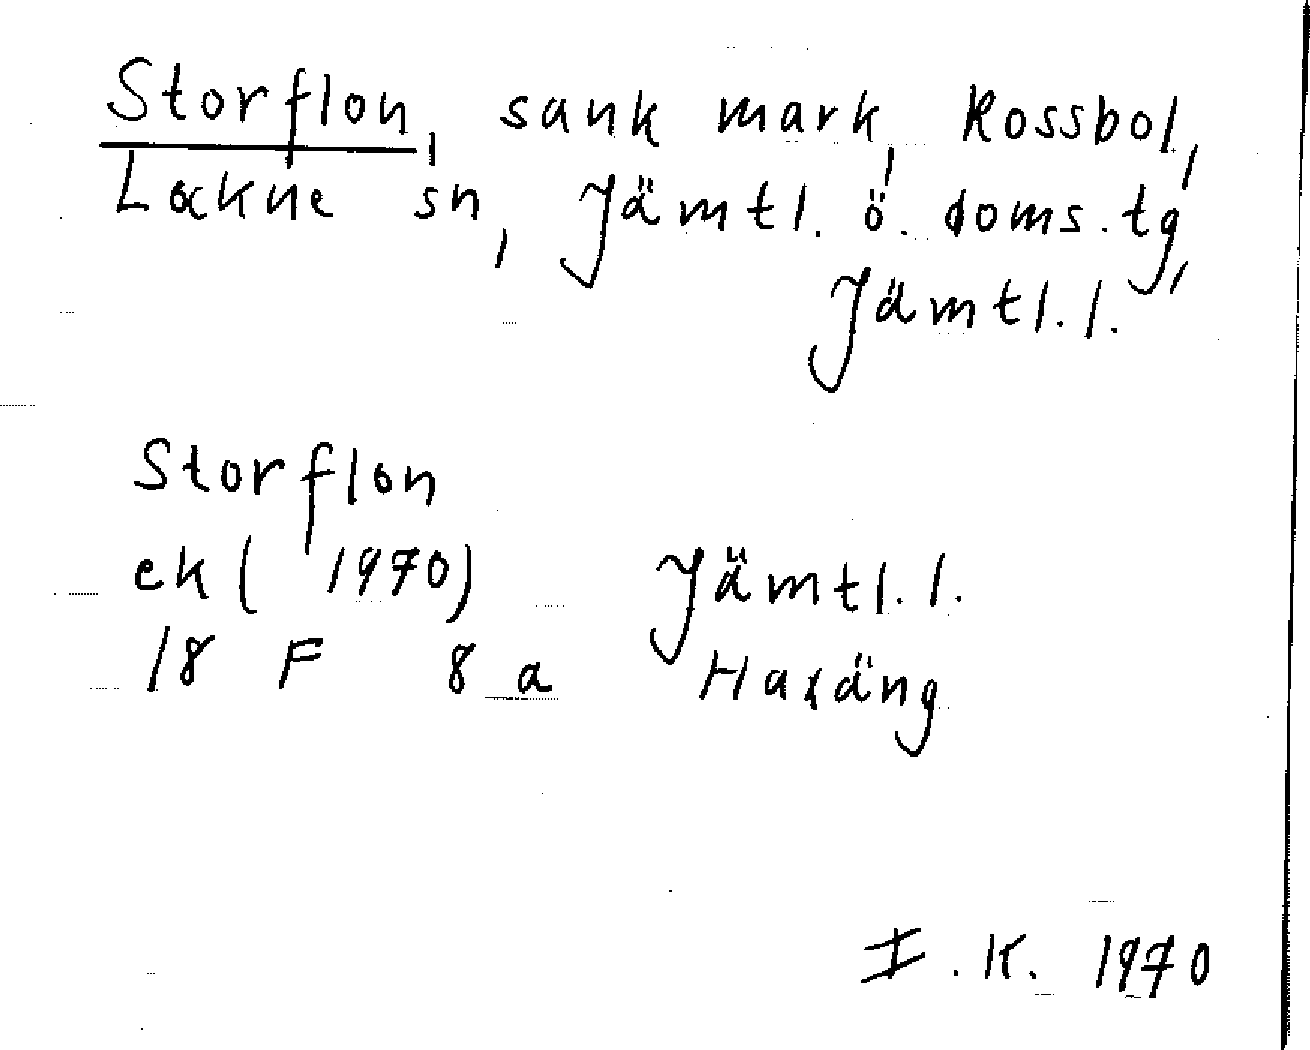 Storflon, sank mark, Rossbol,
Lockne sn, Jämtl. ö. doms. tg,
Jämtl. l.
Storflon
ek ( 1970) Jämtl. l.
18 F 8 a Haxäng
I. K. 1970